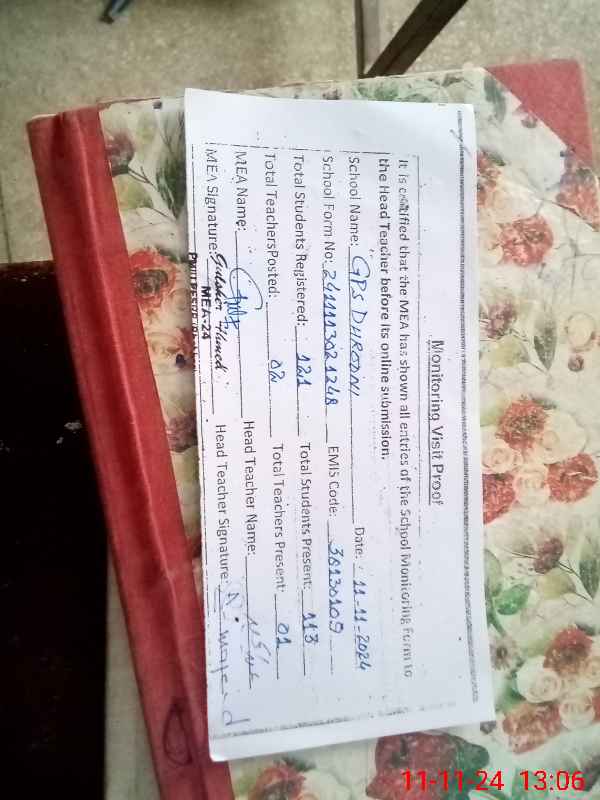 Monitoring Visit Proof
It is certified that the MEA has shown all entries of the School Monitoring Form to
the Head Teacher before its online submission.
School Name: GPS DHRODNI Date: 11-11-2024
School Form No: 2411113021248 EMIS Code: 36130109
Total Students Registered: 121 Total Students Present: 113
Total TeachersPosted: 02 Total Teachers Present: 01
MEA Name: Head Teacher Name:
MEA Signature: Head Teacher Signature:
MEA-24
11-11-24 13:06